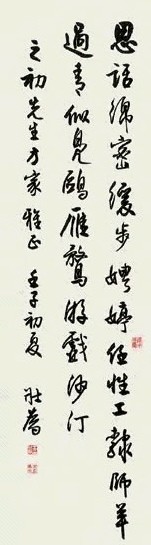 恩話綿密緩步娉婷任性工隸師羊
過青似見鷗雁鶩游戲沙汀
之初先生方家雅正 壬子初夏 壯蓍